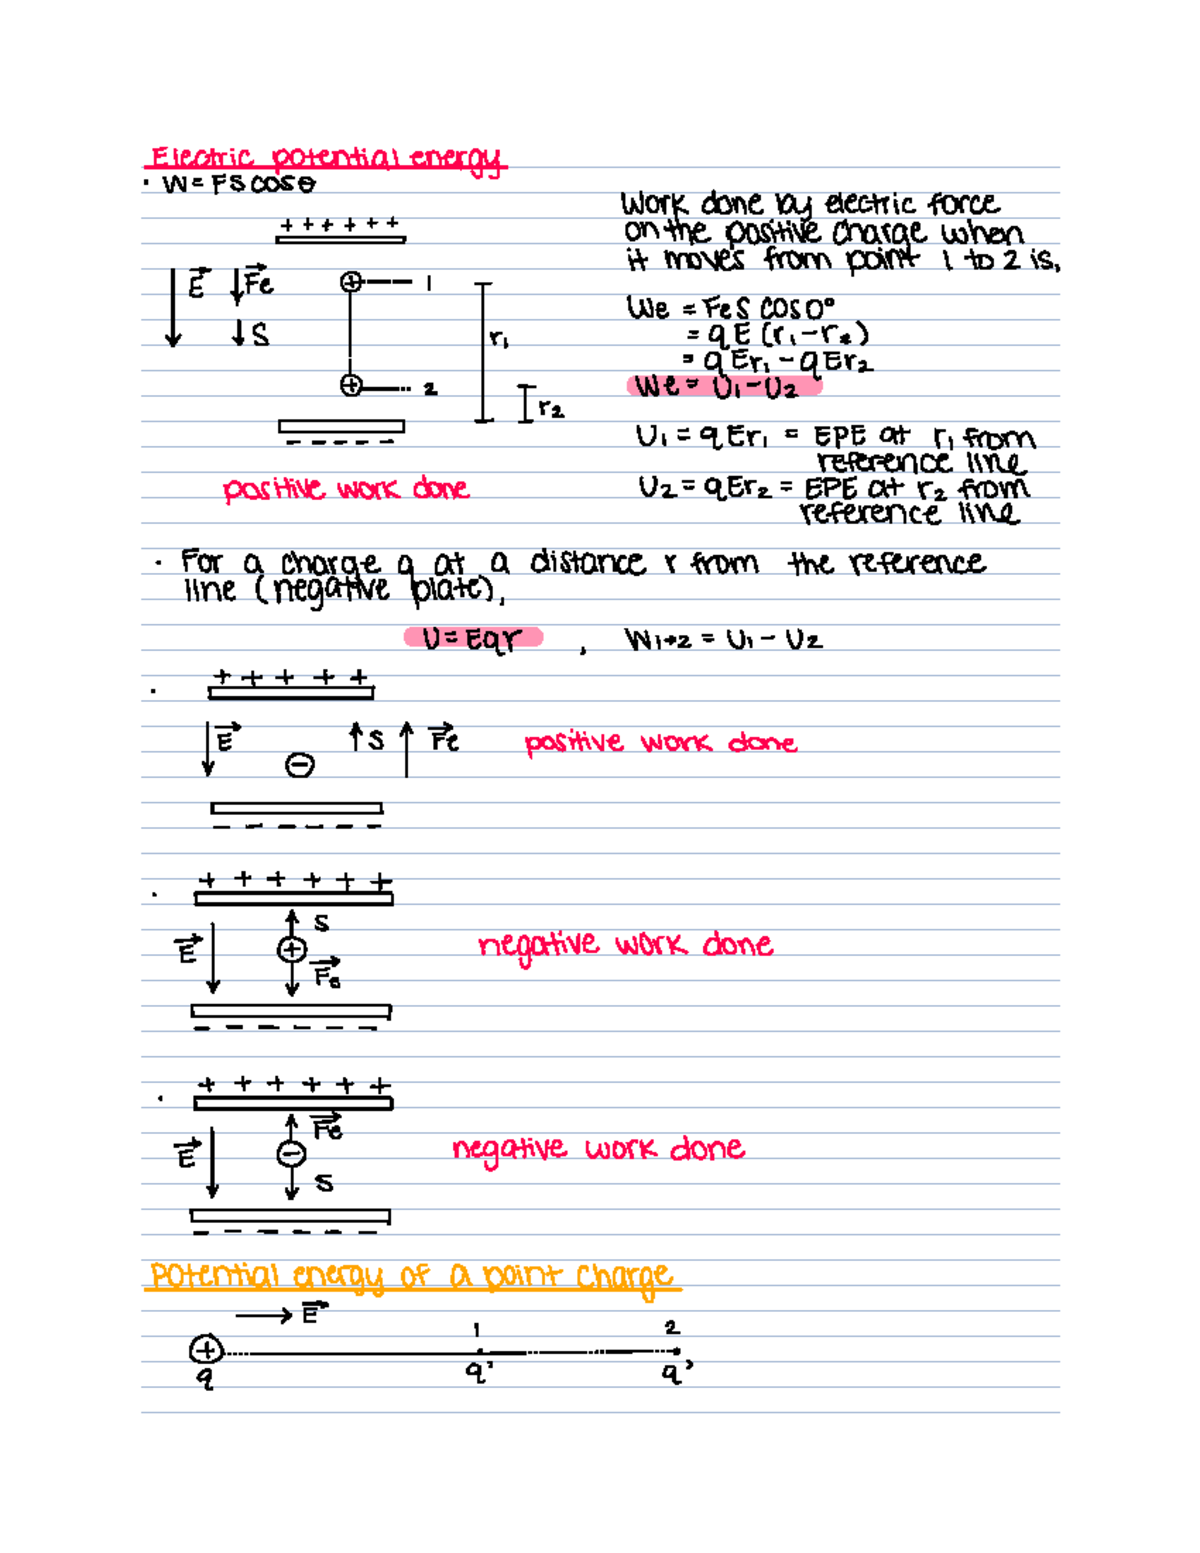 Electric potential energy
· W = FS cosθ
Work done by electric force
on the positive charge when
it moves from point 1 to 2 is,
+ + + + + +
E Fe
1
S
r₁
2
r₂
– – – – – –
We = FeS cos0°
= qE (r₁ – r₂)
= qEr₁ – qEr₂
We = U₁ – U₂
U₁ = qEr₁ = EPE at r₁ from
reference line
U₂ = qEr₂ = EPE at r₂ from
reference line
positive work done
· For a charge q at a distance r from the reference
line (negative plate),
U = Eqr , W₁→₂ = U₁ – U₂
+ + + + +
E S Fe
–
positive work done
– – – – – –
+ + + + + +
S
E +
Fe
negative work done
– – – – – –
+ + + + + +
Fe
E –
S
negative work done
– – – – – –
Potential energy of a point charge
E
1 2
+
q q' q'